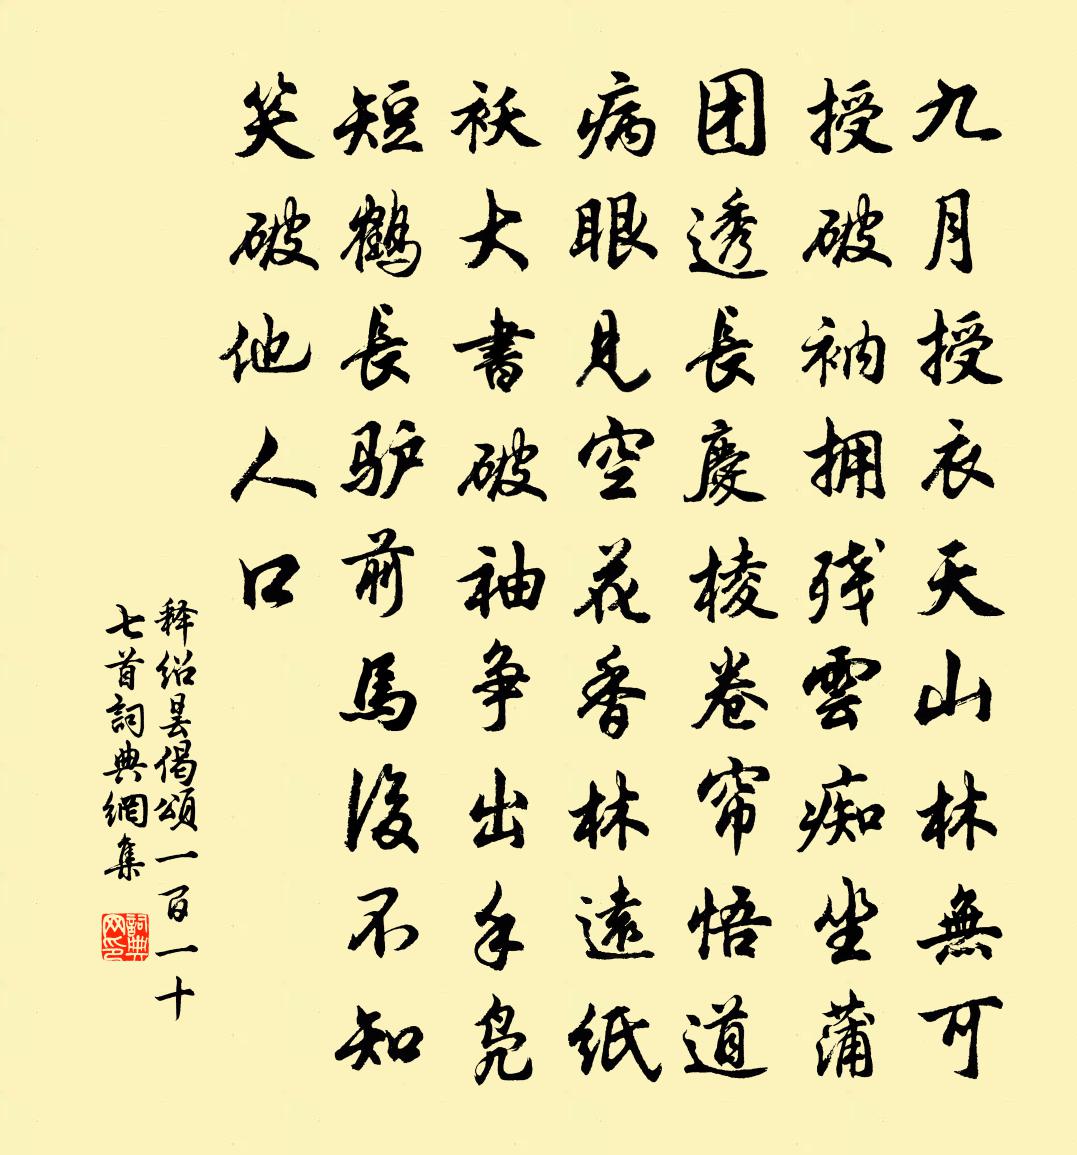 九月授衣天山林無可
授破衲拥残雲痴坐蒲
团透長慶棱卷帘悟道
病眼見空花香林遠紙
袄大書破袖争出手凫
短鶴長驴前馬後不知
笑破他人口
释绍昙偈頌一百一十
七首詞典網集
詞典
网印